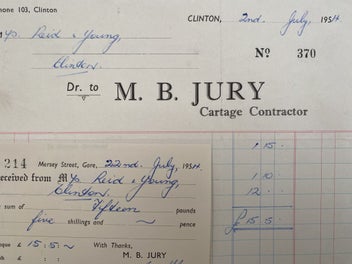 hone 103, Clinton
CLINTON, 2nd. July, 1954
Reid & Young,
Clinton.
No 370
Dr. to M. B. JURY
Cartage Contractor
1 15 .
1 10
12
£15. 5.
214 Mersey Street, Gore, 22nd. July, 1954.
eceived from M/s Reid & Young,
Clinton.
e sum of Fifteen pounds
five shillings and ~ pence
que £ 15 : 5 : ~ With Thanks,
M. B. JURY